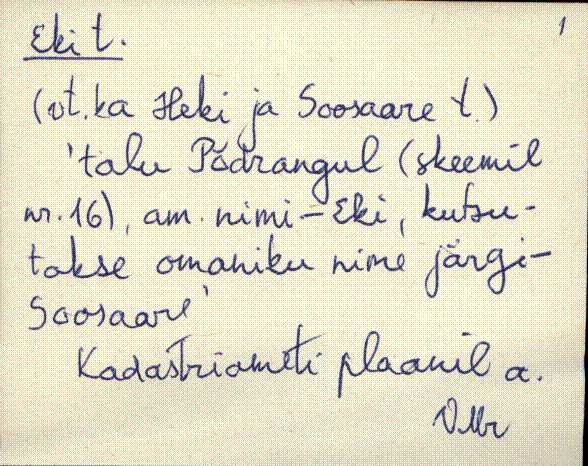 1
Eki t.
(vt. ka Heki ja Soosaare t.)
'talu Pödrangul (skeemil
nr. 16), am. nimi - Eki, kutsu-
takse omaniku nime järgi -
Soosaare'
Kadastriameti plaanil a.
VMr